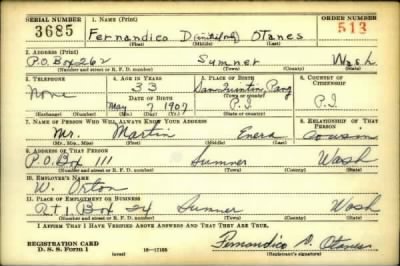 SERIAL NUMBER 1. NAME (Print) ORDER NUMBER
3685 Fernandico D (initial only) Otanes 513
(First) (Middle) (Last)
2. ADDRESS (Print)
P.O. Box 262 Sumner Wash
(Number and street or R. F. D. number) (Town) (County) (State)
3. TELEPHONE 4. AGE IN YEARS 5. PLACE OF BIRTH 6. COUNTRY OF CITIZENSHIP
None 33 San Quintin, Pang
DATE OF BIRTH (Town or county)
May 7 1907 P.I. P.I.
(Exchange) (Number) (Mo.) (Day) (Yr.) (State or country)
7. NAME OF PERSON WHO WILL ALWAYS KNOW YOUR ADDRESS 8. RELATIONSHIP OF THAT PERSON
Mr. Martin Enera Cousin
(Mr., Mrs., Miss) (First) (Middle) (Last)
9. ADDRESS OF THAT PERSON
P.O. Box 111 Sumner Wash
(Number and street or R. F. D. number) (Town) (County) (State)
10. EMPLOYER'S NAME
W. Orton
11. PLACE OF EMPLOYMENT OR BUSINESS
Rt 1 Box 24 Sumner Wash
(Number and street or R. F. D. number) (Town) (County) (State)
I AFFIRM THAT I HAVE VERIFIED ABOVE ANSWERS AND THAT THEY ARE TRUE.
REGISTRATION CARD Fernandico D. Otanes
D. S. S. Form 1 (over) 16-17105 (Registrant's signature)